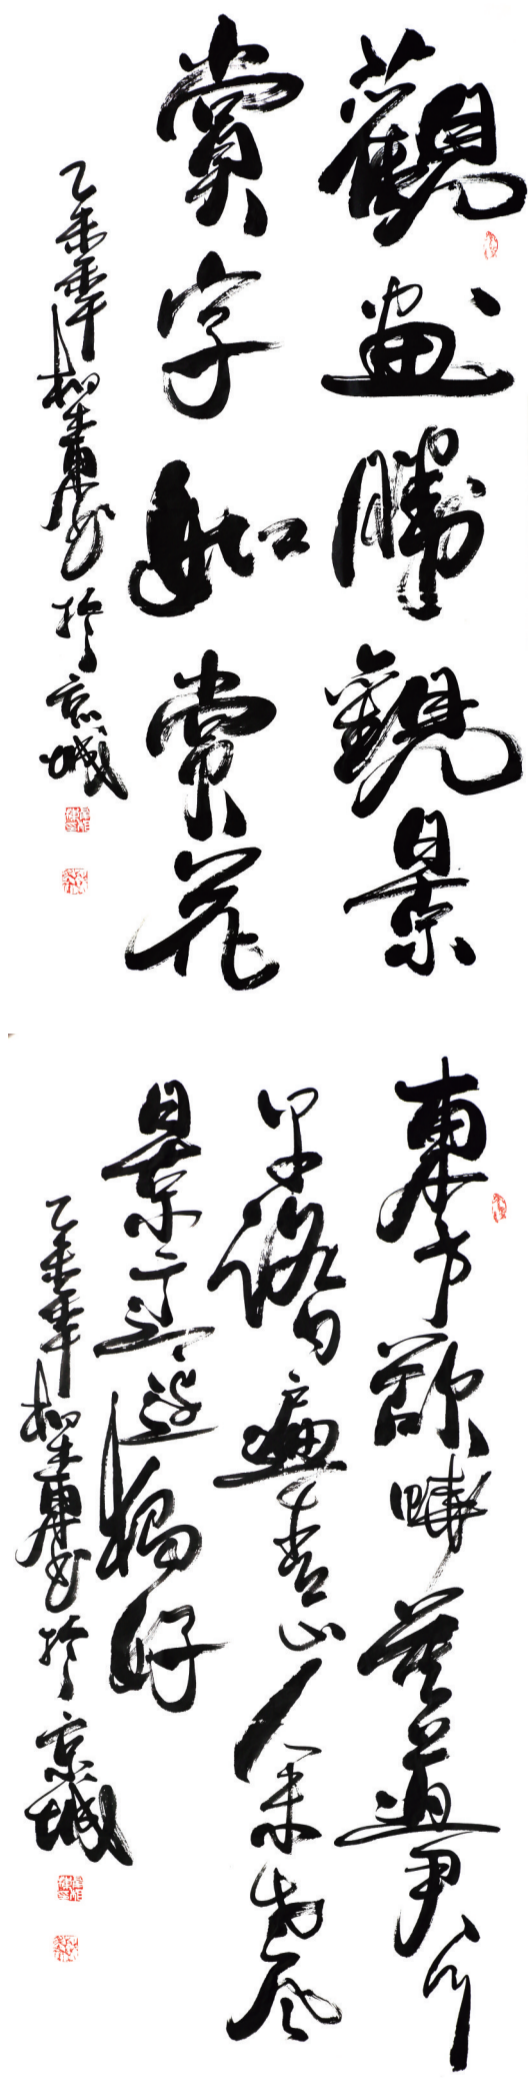 觀畫勝觀景
賞字如賞花
乙未年書於京城
東方欲曉莫道君行
早踏遍青山人未老風
景這邊獨好
乙未年書於京城